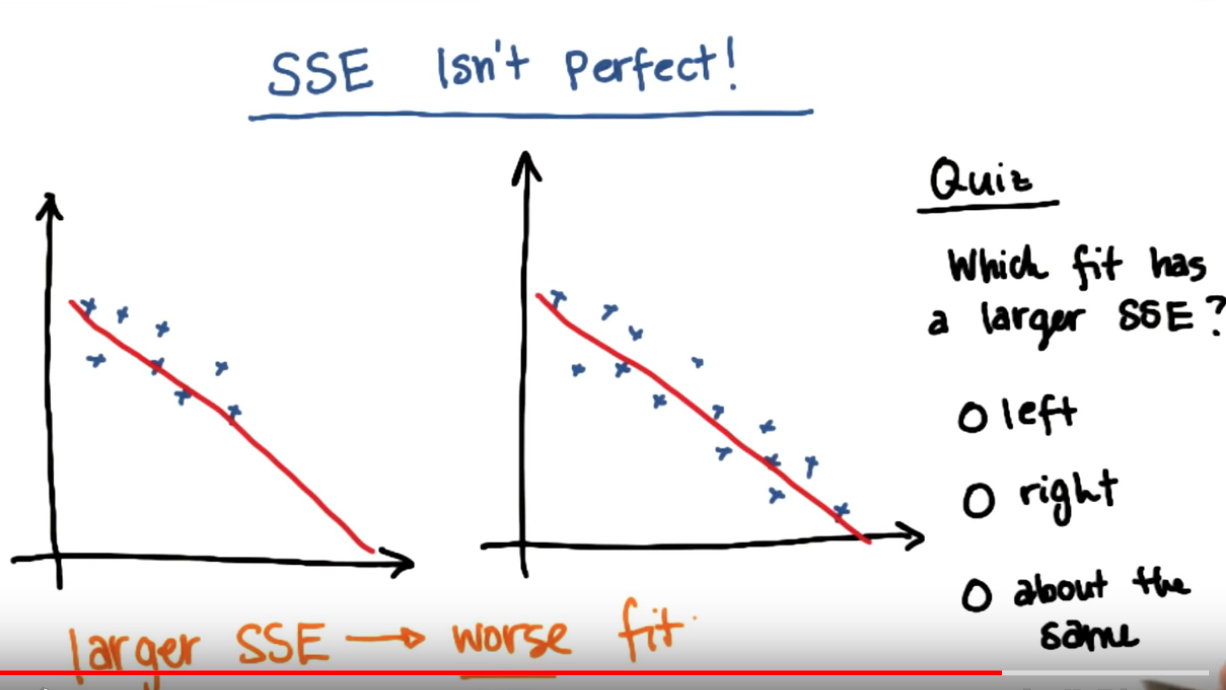 SSE Isn't Perfect!
Quiz
Which fit has
a larger SSE?
left
right
about the
same
larger SSE → worse fit